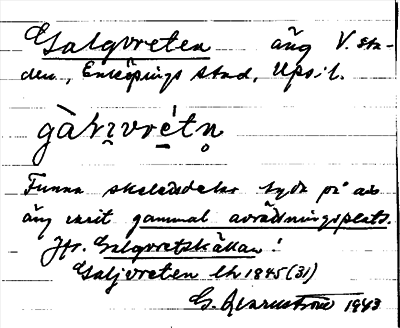 Galgvreten äng V. sta-
den, Enköpings stad, Uppsl.
gàḷvrétn̥
Funna skelettdelar tyda på att
äng varit gammal avrättningsplats.
Jfr. Galgvretskällan!
Galjvreten lh 1845 (31)
G. 1943